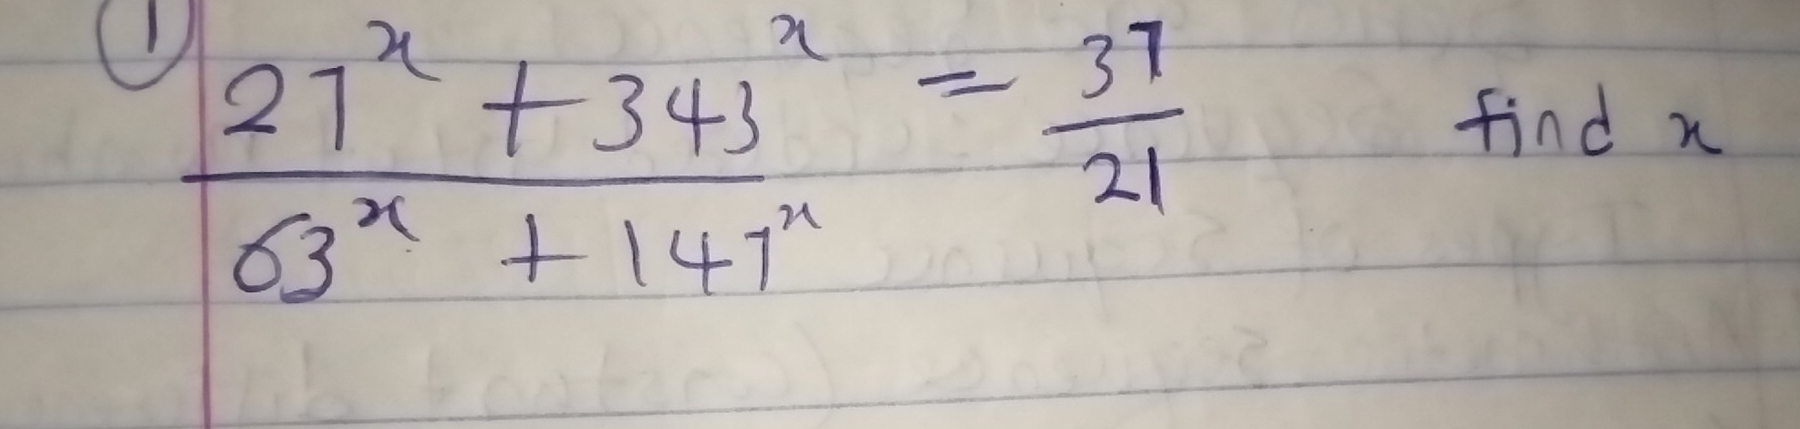 ① (27^x + 343^x) / (63^x + 147^x) = 37/21 find x